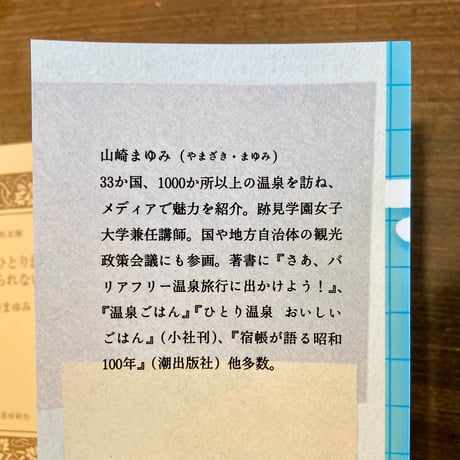 山崎まゆみ（やまざき・まゆみ）
33か国、1000か所以上の温泉を訪ね、
メディアで魅力を紹介。跡見学園女子
大学兼任講師。国や地方自治体の観光
政策会議にも参画。著書に『さあ、バ
リアフリー温泉旅行に出かけよう！』、
『温泉ごはん』『ひとり温泉 おいしい
ごはん』（小社刊）、『宿帳が語る昭和
100年』（潮出版社）他多数。
文庫
ひとり
られない
まゆみ
書房新社